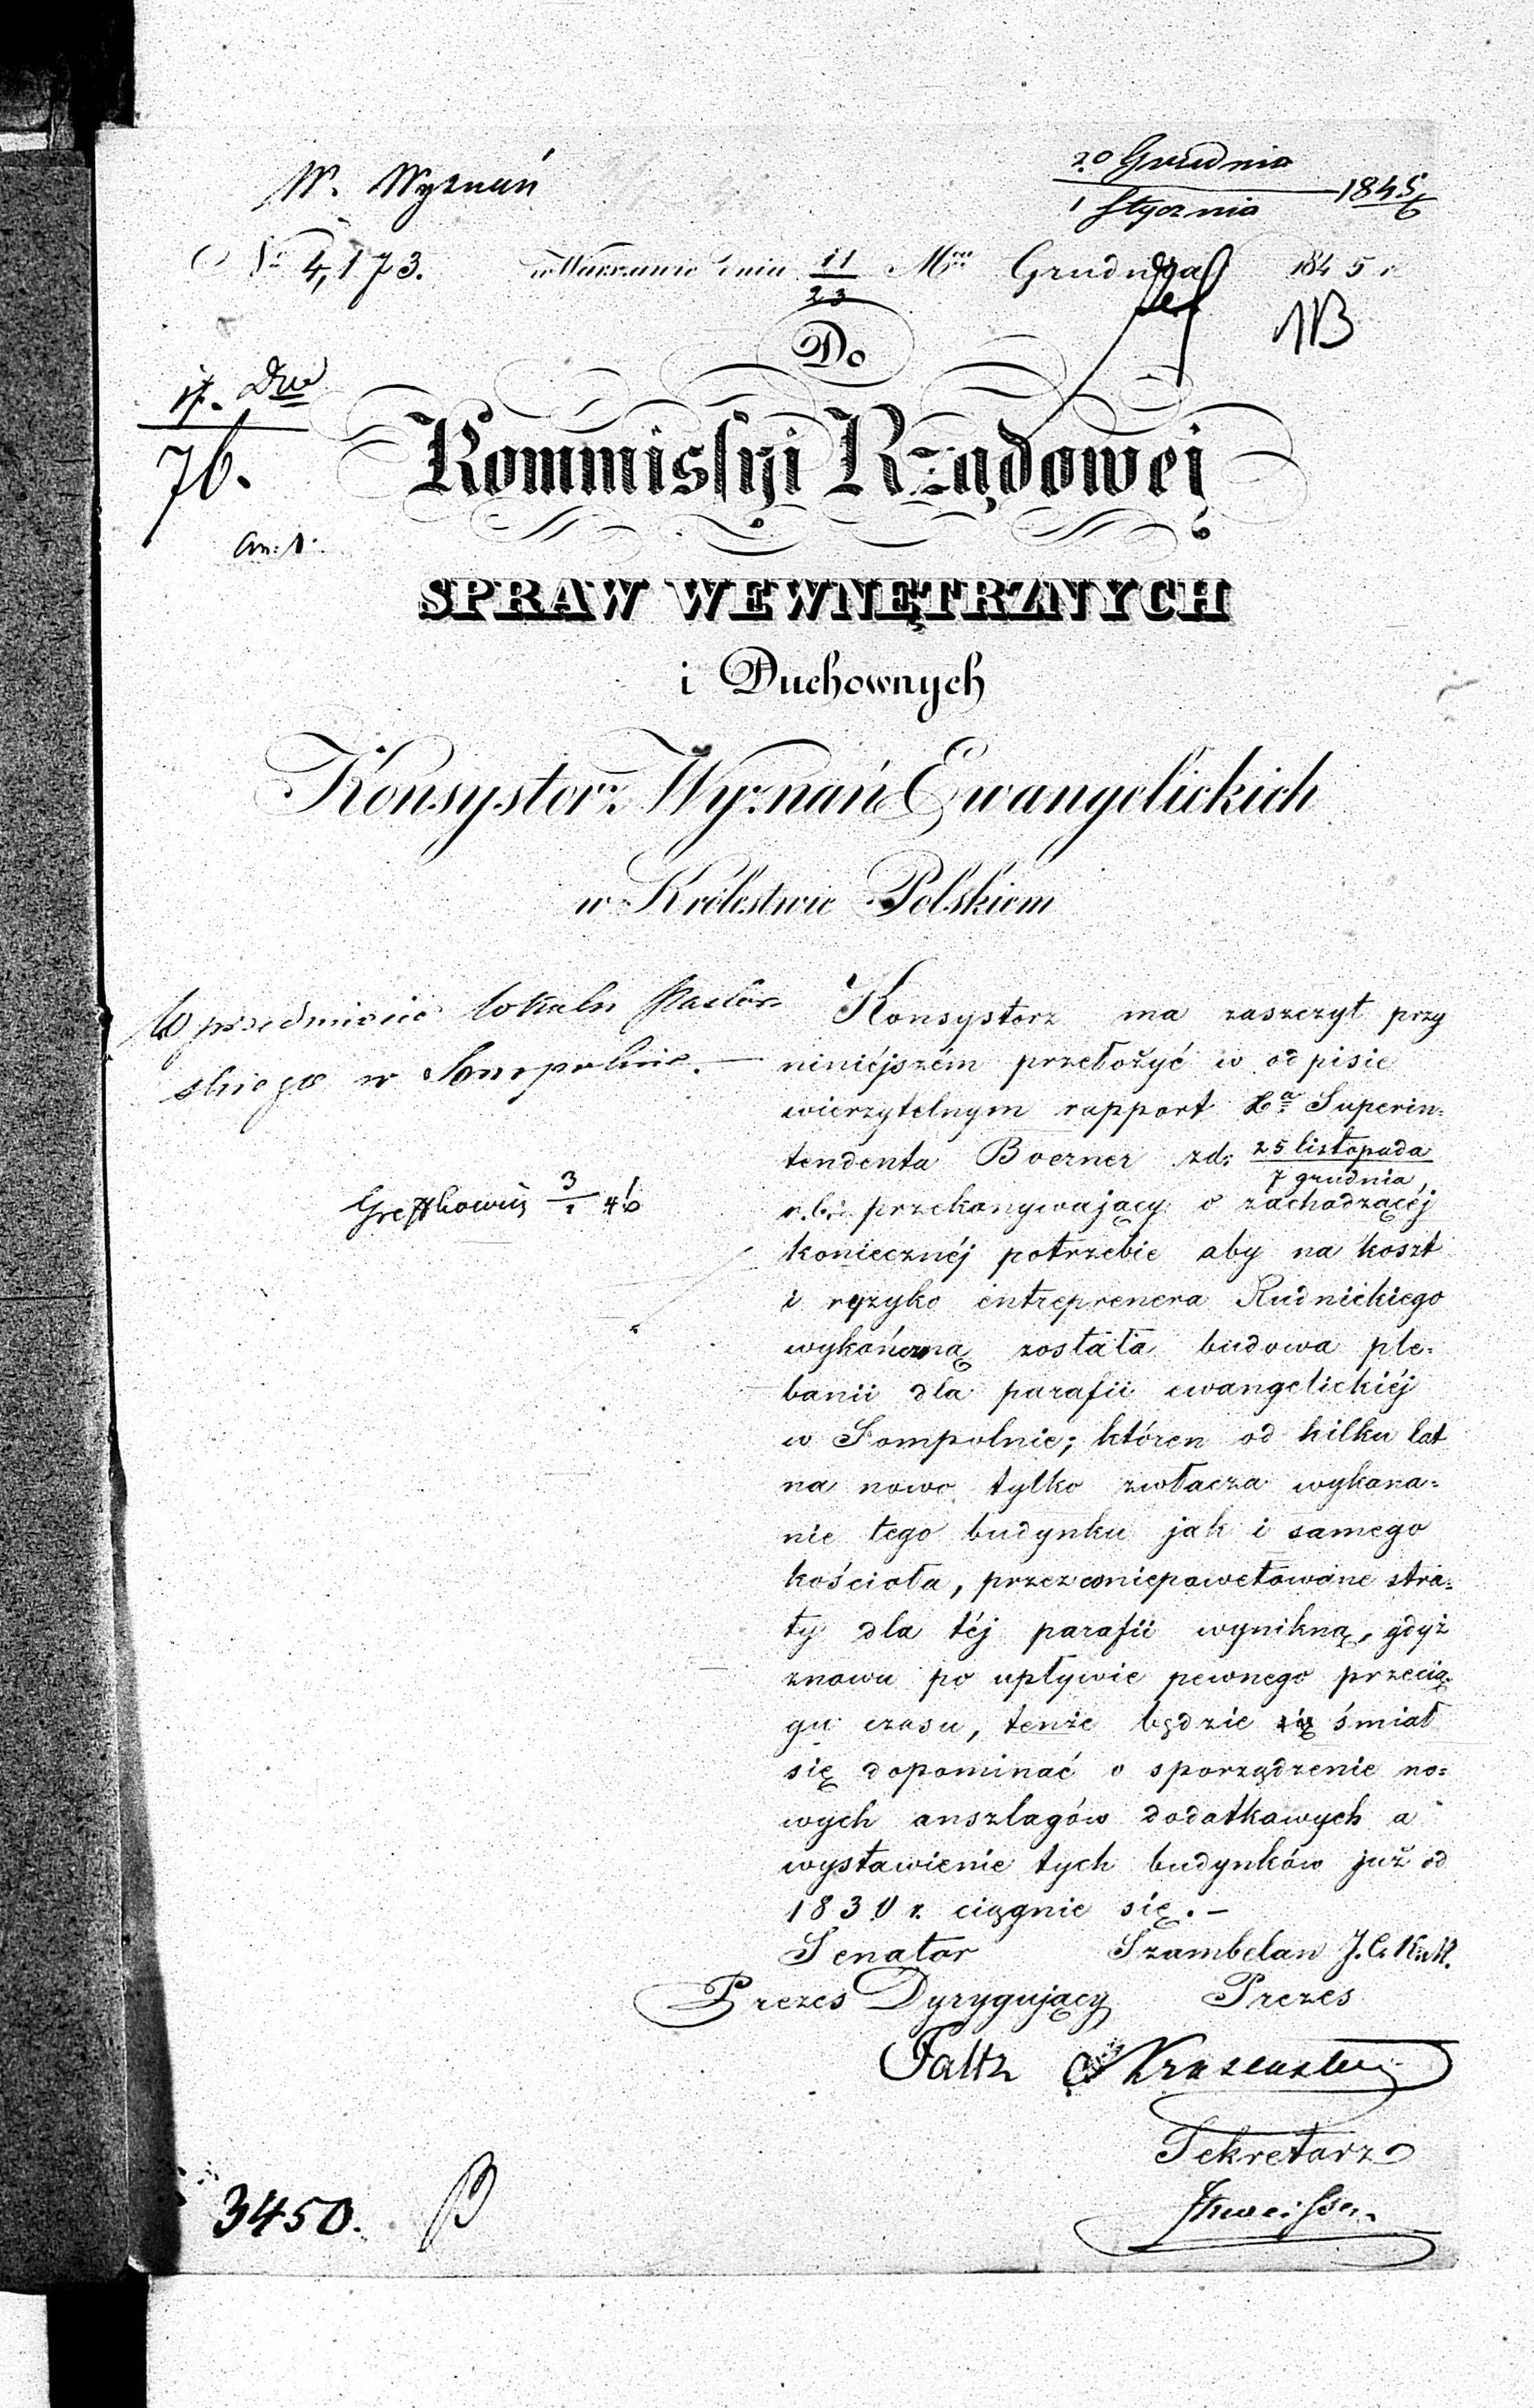 W. Wyznań
20 Grudnia
1 Stycznia 1845/6
No 4,173. w Warszawie dnia 11/23 Mca Grudnia 1845 r
Do
76.
Kommissyi Rządowej
an: 1.
SPRAW WEWNĘTRZNYCH
i Duchownych
Konsystorz Wyznań Ewangelickich
w Królestwie Polskiem
W przedmiocie lokalu Pastor-
skiego w Sompolnie. —
3/1 46
Konsystorz ma zaszczyt przy
niniéjszém przełożyć w odpisie
wierzytelnym rapport Xa Superin=
tendenta Boerner zd: 25 listopada
7 grudnia,
r.b: przekonywający o zachodzącéj
koniecznéj potrzebie aby na koszt
i ryzyko entreprenera Rudnickiego
wykończoną została budowa ple=
banii dla parafii ewangelickiéj
w Sompolnie; któren od kilku lat
na nowo tylko zwłacza wykona=
nie tego budynku jak i samego
kościoła, przez co niepowetowane stra=
ty dla téj parafii wynikną, gdyż
znowu po upływie pewnego przecią=
gu czasu, tenże będzie śmiał
się dopominać o sporządzenie no=
wych anszlagów dodatkowych a
wystawienie tych budynków już od
1830 r. ciągnie się. —
Senator Szambelan J. C. K. M.
Prezes Dyrygujący Prezes
Faltz
Sekretarz
3450.